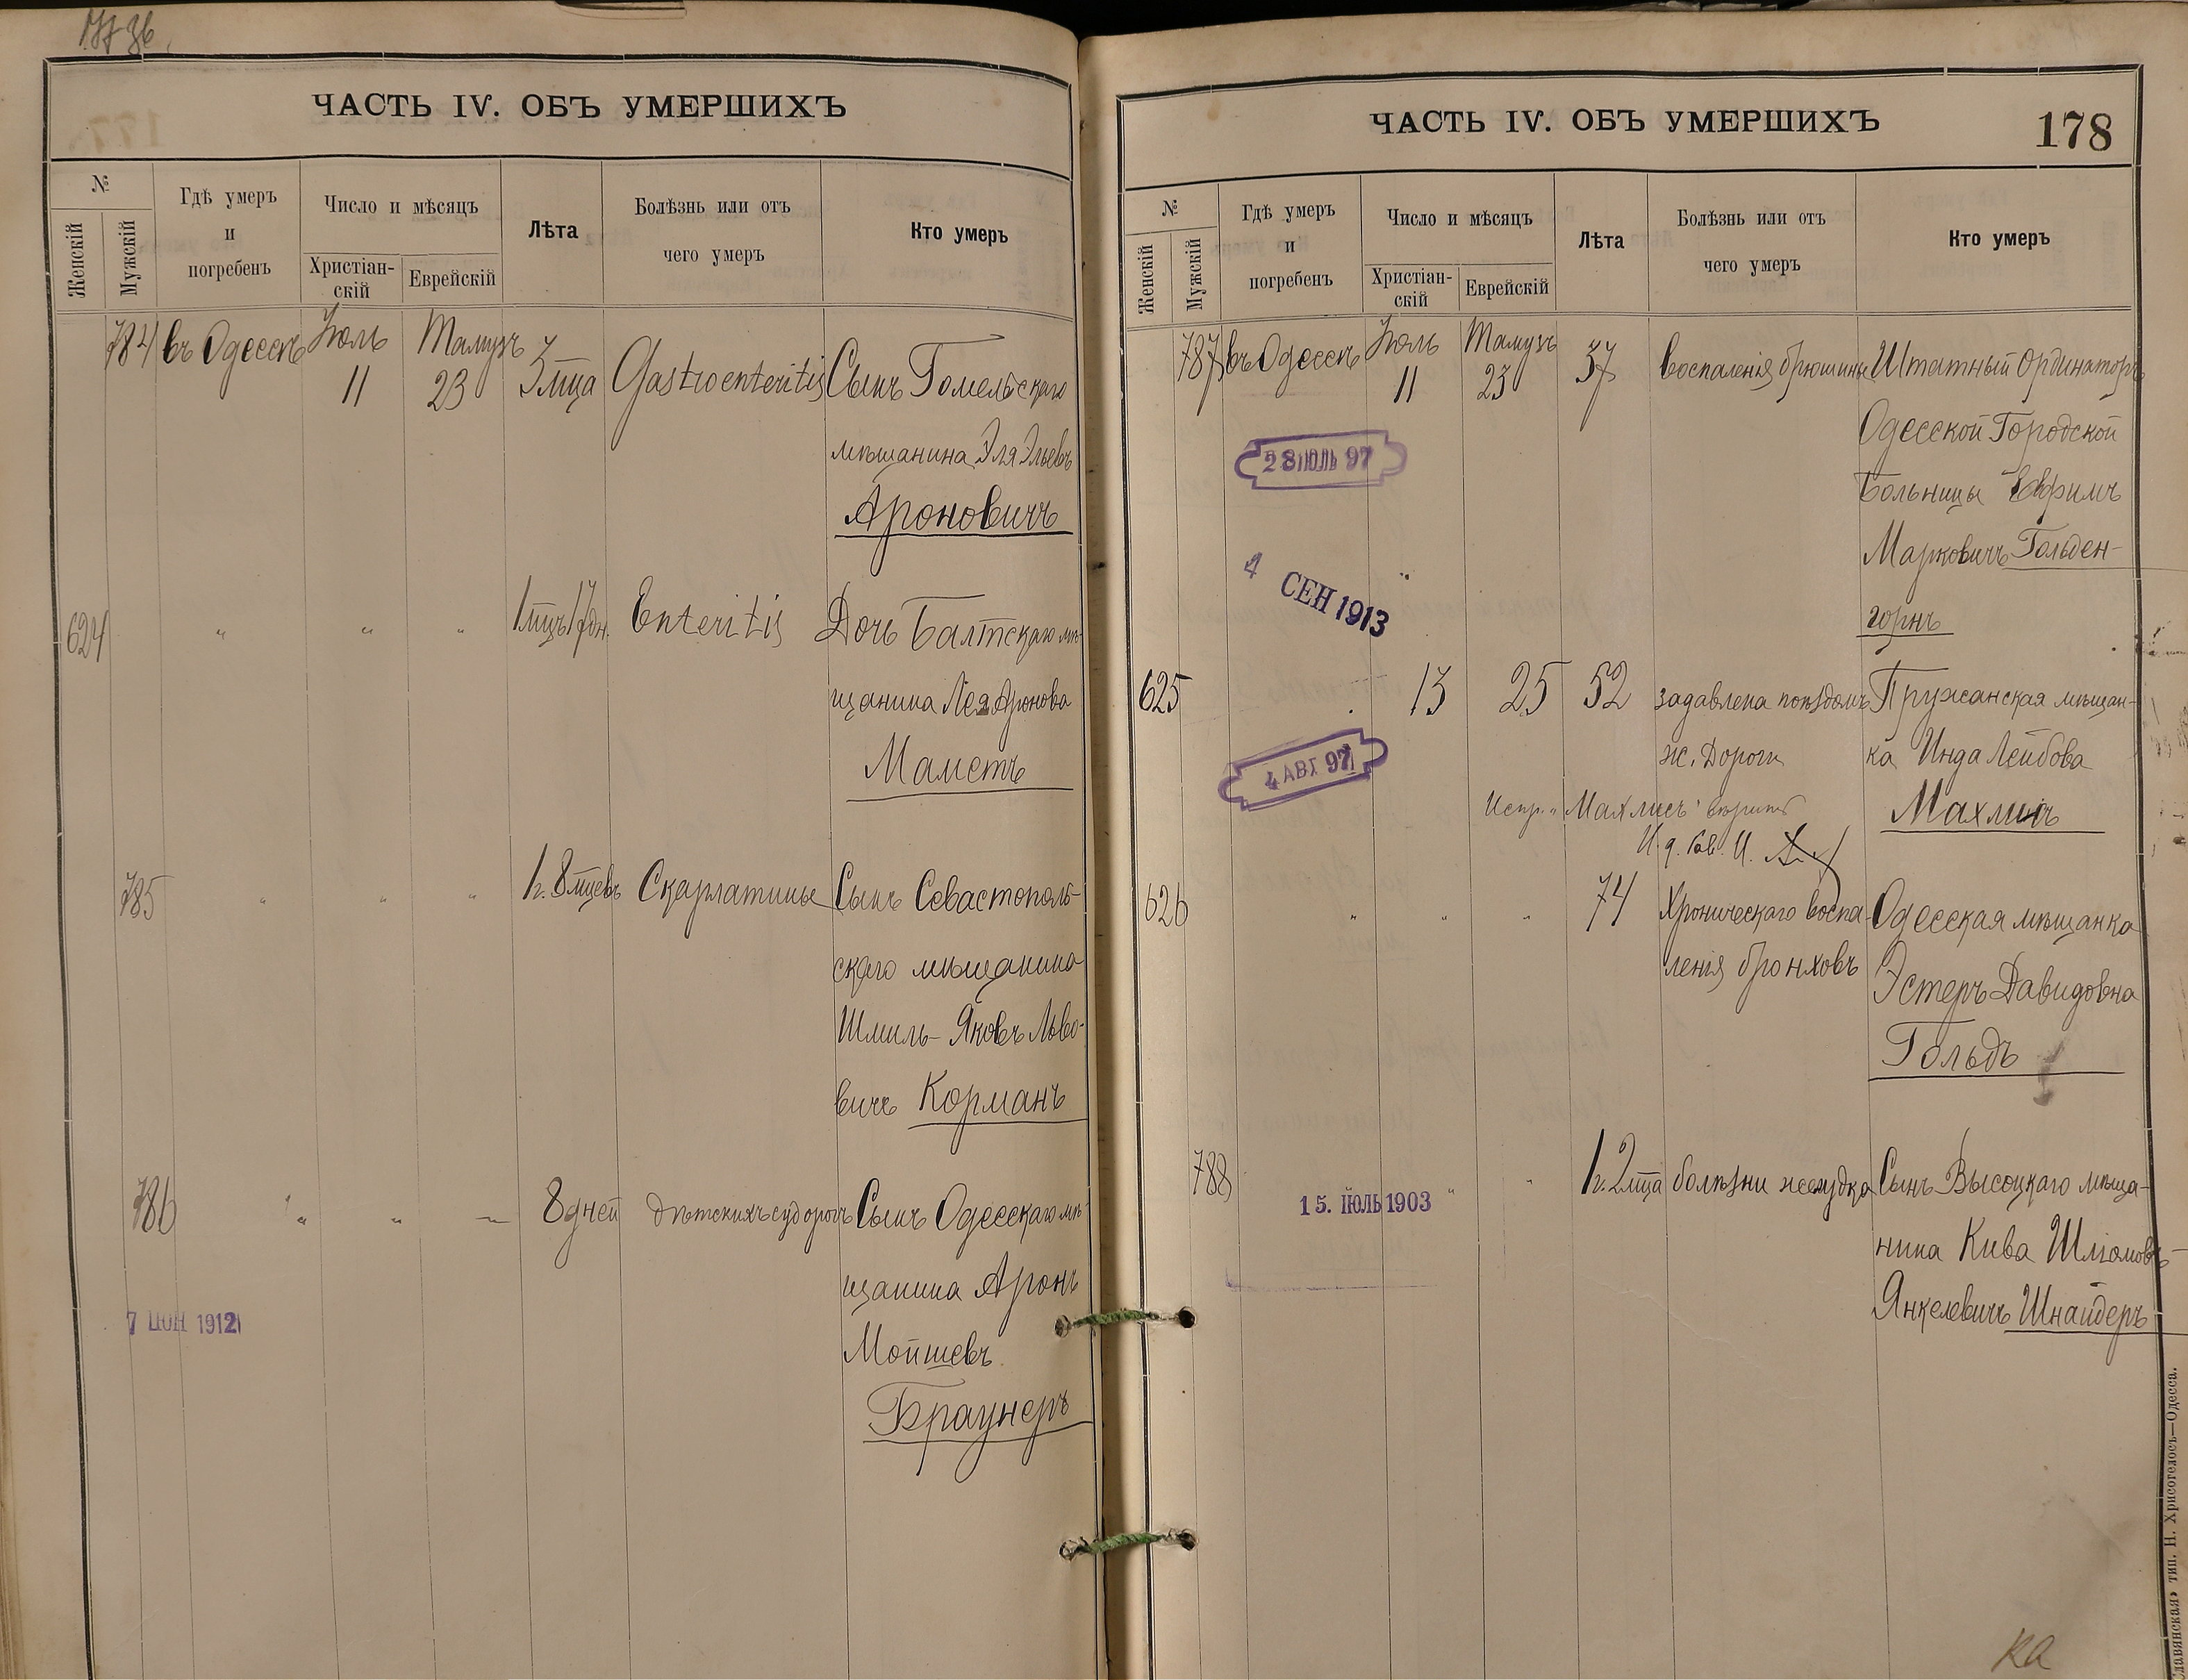 ЧАСТЬ IV. ОБЪ УМЕРШИХЪ
№
Женскій
Мужскій
Гдѣ умеръ
и
погребенъ
Число и мѣсяцъ
Христіан-
скій
Еврейскій
Лѣта
Болѣзнь или отъ
чего умеръ
Кто умеръ
784 въ Одессѣ Іюль 11 Тамузъ 23 3 мца Gastroenteritis Сынъ Гомельскаго
мѣщанина Эля Эльевъ
Ароновичъ
624 " " " 1 мцъ 17 дн. Enteritis Дочь Балтскаго мѣ-
щанина Лея Аронова
Маметъ
785 " " " 1 г. 8 мцевъ Скарлатины Сынъ Севастополь-
скаго мѣщанина
Шмиль-Яковъ Льво-
вичъ Корманъ
786 " " " 8 дней дѣтскихъ судорогъ Сынъ Одесскаго мѣ-
щанина Аронъ
Мойшевъ
7 ІЮН 1912
Браунеръ
ЧАСТЬ IV. ОБЪ УМЕРШИХЪ
178
№
Женскій
Мужскій
Гдѣ умеръ
и
погребенъ
Число и мѣсяцъ
Христіан-
скій
Еврейскій
Лѣта
Болѣзнь или отъ
чего умеръ
Кто умеръ
787 въ Одессѣ Іюль 11 Тамузъ 23 37 воспаленія брюшины Штатный Ординаторъ
Одесской Городской
28 ІЮЛЬ 97
Больницы Ефимъ
Марковичъ Гольден-
4 СЕН 1913
горнъ
625 13 25 52 задавлена поѣздомъ Пружанская мѣщан-
ж. Дороги ка Инда Лейбова
4 АВГ 97
Испр. "Махлисъ" вѣрить
Махлисъ
И. д. Рав. И.
626 " " " 74 Хроническаго воспа- Одесская мѣщанка
ленія бронховъ Эстеръ Давидовна
Гольдъ
788 " " 1 г. 2 мца болѣзни желудка Сынъ Высоцкаго мѣща-
15. ІЮЛЬ 1903
нина Кива Шліомовъ-
Янкелевичъ Шнайдеръ
Славянская» тип. Н. Хрисогелосъ—Одесса.